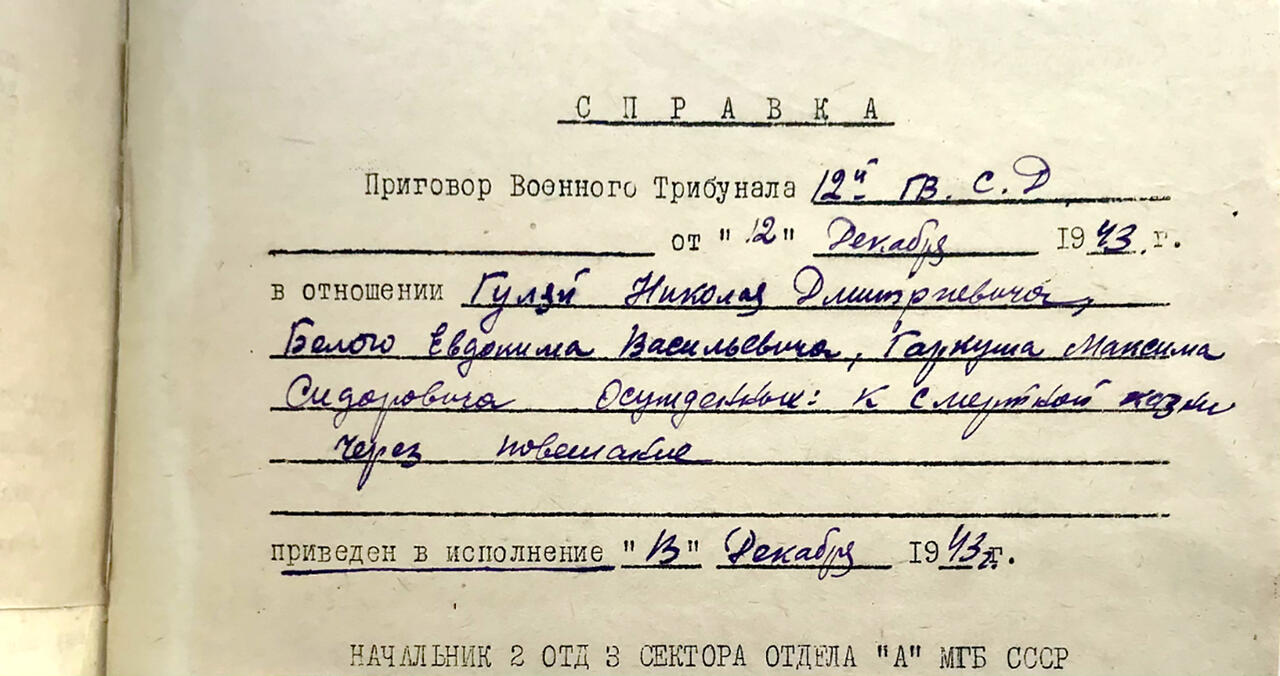 СПРАВКА
Приговор Военного Трибунала 12й ГВ. С. Д
от "12" Декабря 1943 г.
в отношении Гуляй Николая Дмитриевича,
Белого Евдокима Васильевича, Гаркуша Максима
Сидоровича Осужденных: к смертной казни
через повешание
приведен в исполнение "13" Декабря 1943 г.
НАЧАЛЬНИК 2 ОТД 3 СЕКТОРА ОТДЕЛА "А" МГБ СССР